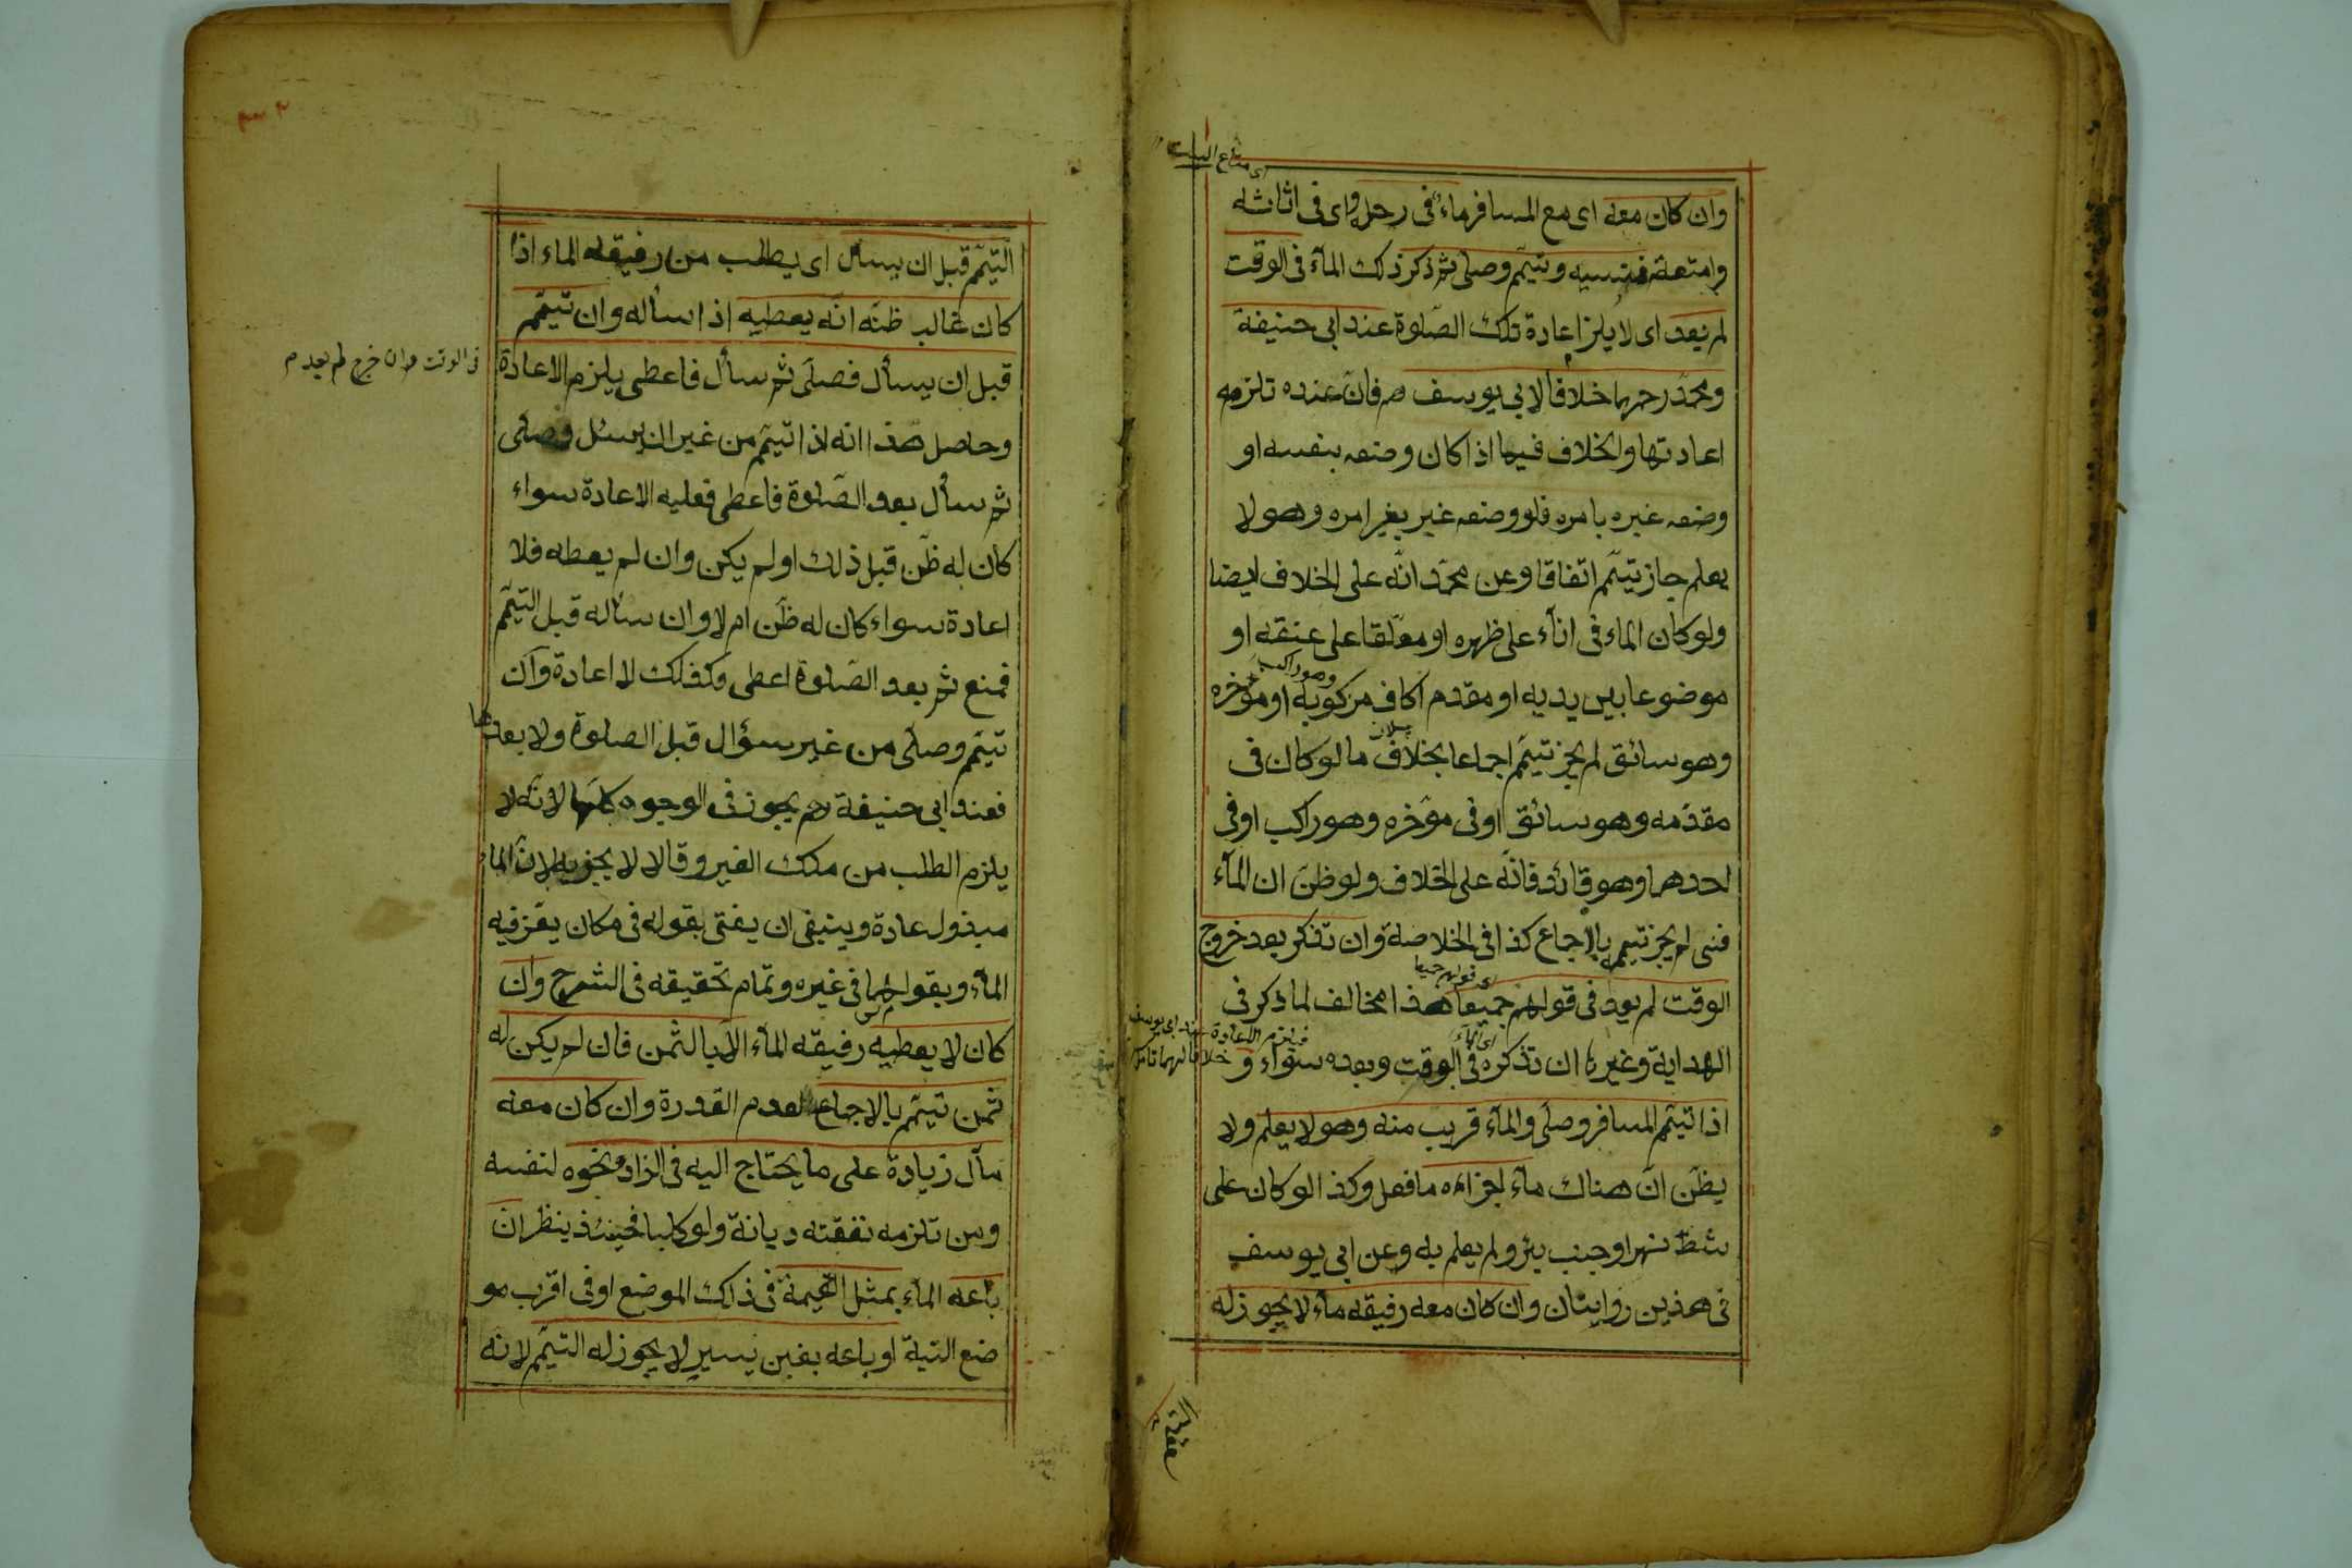 اى متاع البيت
وان كان معه اى مع المسافر ماء فى رحله واى فى اثاثه
وامتعته فنسيه وتيمّم وصلى ثم ذكر ذلك المآء فى الوقت
لم يعد اى لا يلزم اعادة تلك الصّلوة عند ابى حنيفة
ومحمّد رحمهما خلافا لابى يوسف رح فانّ عنده تلزمه
اعادتها والخلاف فيما اذا كان وضعه بنفسه او
وضعه غيره بامره فلو وضعه غير بغير امره وهو لا
يعلم جاز تيمّم اتفاقا وعن محمّد انّه على الخلاف ايضا
ولو كان الماء فى انآء على ظهره او معلّقا على عنقه او
وهو راكب
موضوعا بين يديه او مقدم اكاف مركوبه او مؤخره
وهو سائق لم يجز تيمّم اجماعا بخلاف ما لو كان فى
مقدّمه وهو سائق او فى مؤخره وهو راكب او فى
احدهما وهو قائد فانّه على الخلاف ولو ظنّ ان المآء
فنى لم يجز تيمم بالاجماع كذا فى الخلاصة وان تذكر بعد خروج
اى قولهم جميعا
الوقت لم يعد فى قولهم جميعا هذا مخالف لما ذكر فى
اى المآء
فيلزم الاعادة عند ابى يوسف
خلافا لهما تامل
الهداية وغيرها ان تذكره فى الوقت وبعده سواء و
اذا تيمّم المسافر وصلى والمآء قريب منه وهو لا يعلم ولا
يظنّ انّ هناك مآء اجزاءه ما فعل وكذا لو كان على
شطّ نهر او جنب بئر ولم يعلم به وعن ابى يوسف
فى هذين روايتان وان كان معه رفيقه مآء لا يجوز له
التيمّم قبل ان يسأل اى يطلب من رفيقه الماء اذا
كان غالب ظنّه انّه يعطيه اذا سأله وان تيمّم
قبل ان يسأل فصلّى ثم سأل فاعطى يلزم الاعادة
فى الوقت وان خرج لم يعد م
وحاصل هذا انه اذا تيمّم من غير ان يسئل وصلى
ثم سأل بعد الصّلوة فاعطى فعليه الاعادة سواء
كان له ظنّ قبل ذلك او لم يكن وان لم يعطه فلا
اعادة سواء كان له ظنّ ام لا وان سأله قبل التيمّم
فمنع ثم بعد الصّلوة اعطى وكذلك لا اعادة وان
تيمّم وصلّى من غير سؤال قبل الصلوة ولا بعدها
فعند ابى حنيفة رح يجوز فى الوجوه كلّها لانّه لا
يلزم الطلب من ملك الغير وقالا لا يجزيه لانّ الماء
مبذول عادة وينبغى ان يفتى بقوله فى مكان يعزّ فيه
المآء وبقولهما فى غيره وتمام تحقيقه فى الشرح وان
كان لا يعطيه رفيقه المآء الّا بالثّمن فان لم يكن له
ثمن تيمّم بالاجماع لعدم القدرة وان كان معه
مآل زيادة على ما يحتاج اليه فى الزاد ونحوه لنفسه
ومن تلزمه نفقته ديانة ولو كلبا فحينئذ ينظر ان
باعه المآء بمثل القيمة فى ذلك الموضع او فى اقرب مو
ضع اليه او باعه بغبن يسير لا يجوز له التيمّم لانه